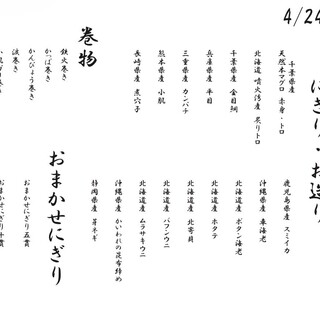 4/24
にぎり・お造り
千葉県産
天然本マグロ 赤身・トロ
北海道 噴火湾産 炙りトロ
千葉県産 金目鯛
兵庫県産 平目
三重県産 カンパチ
熊本県産 小肌
長崎県産 煮穴子
鹿児島県産 スミイカ
沖縄県産 車海老
北海道産 ボタン海老
北海道産 ホタテ
北海道産 北寄貝
北海道産 バフンウニ
北海道産 ムラサキウニ
沖縄県産 かいわれの昆布締め
静岡県産 芽ネギ
巻物
鉄火巻き
かっぱ巻き
かんぴょう巻き
涙巻き
おまかせにぎり
おまかせにぎり五貫
おまかせにぎり十貫